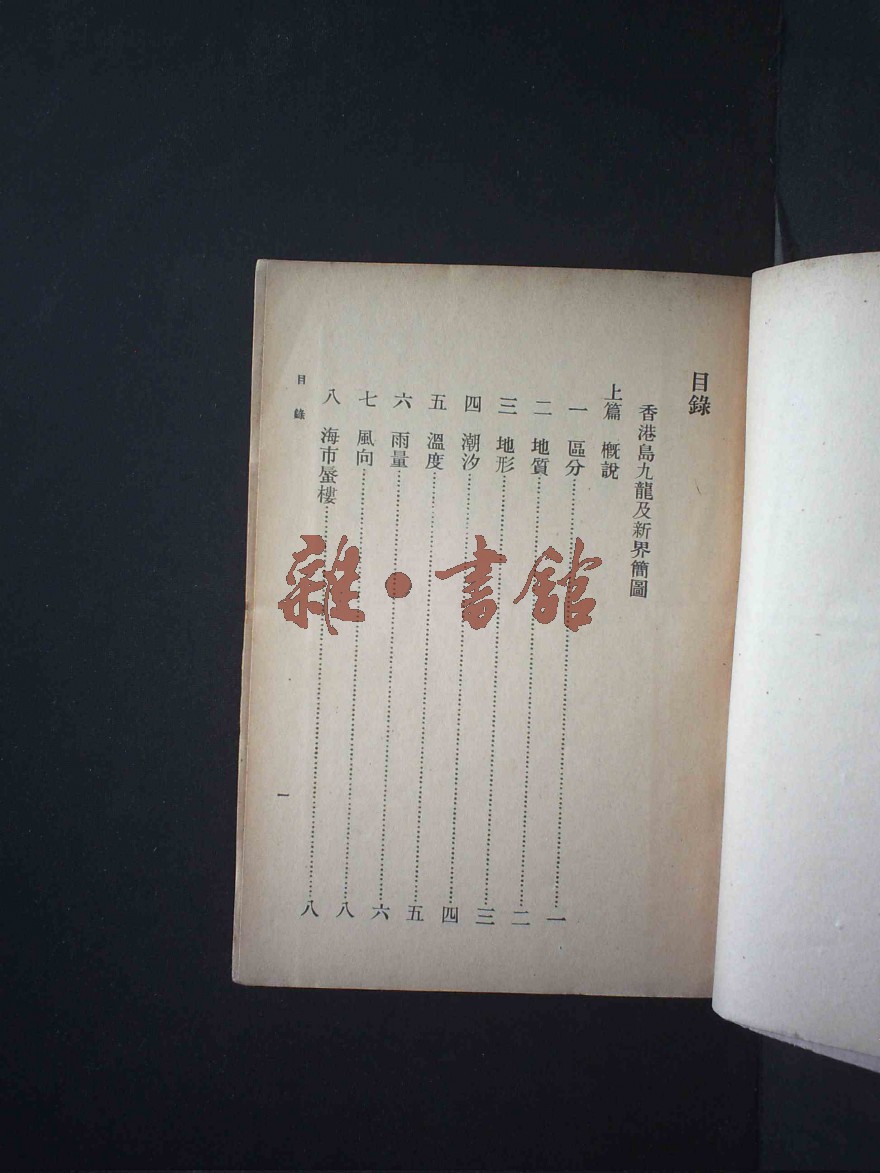 目錄
香港島九龍及新界簡圖
上篇 概說
一 區分……一
二 地質……二
三 地形……三
四 潮汐……四
五 溫度……五
六 雨量……六
七 風向……八
八 海市蜃樓……八
目錄
一
雜·書館